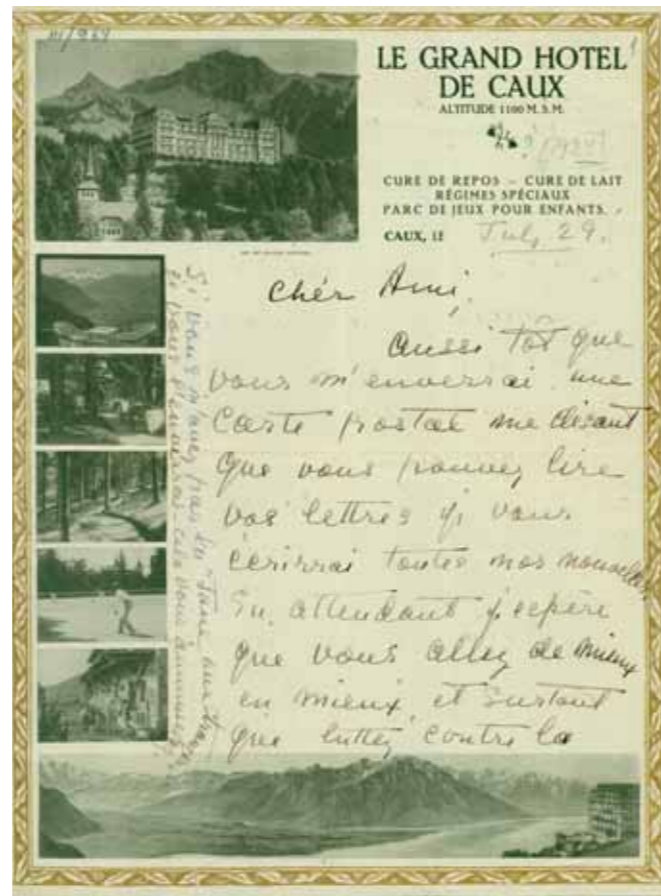 LE GRAND HOTEL
DE CAUX
ALTITUDE 1100 M. S. M.
CURE DE REPOS – CURE DE LAIT
RÉGIMES SPÉCIAUX
PARC DE JEUX POUR ENFANTS.
CAUX, LE July 29.
Chér Ami,
Aussi tot que
vous m'enverrai une
Carte postal me disant
que vous pouvez lire
vos lettres je vous
écrirrai toutes nos nouvelles
En attendant j'espère
que vous allez de mieux
en mieux et surtout
que luttez contre la
Si vous n'avez pas lu
je vous l'enverrais - cela vous amusera